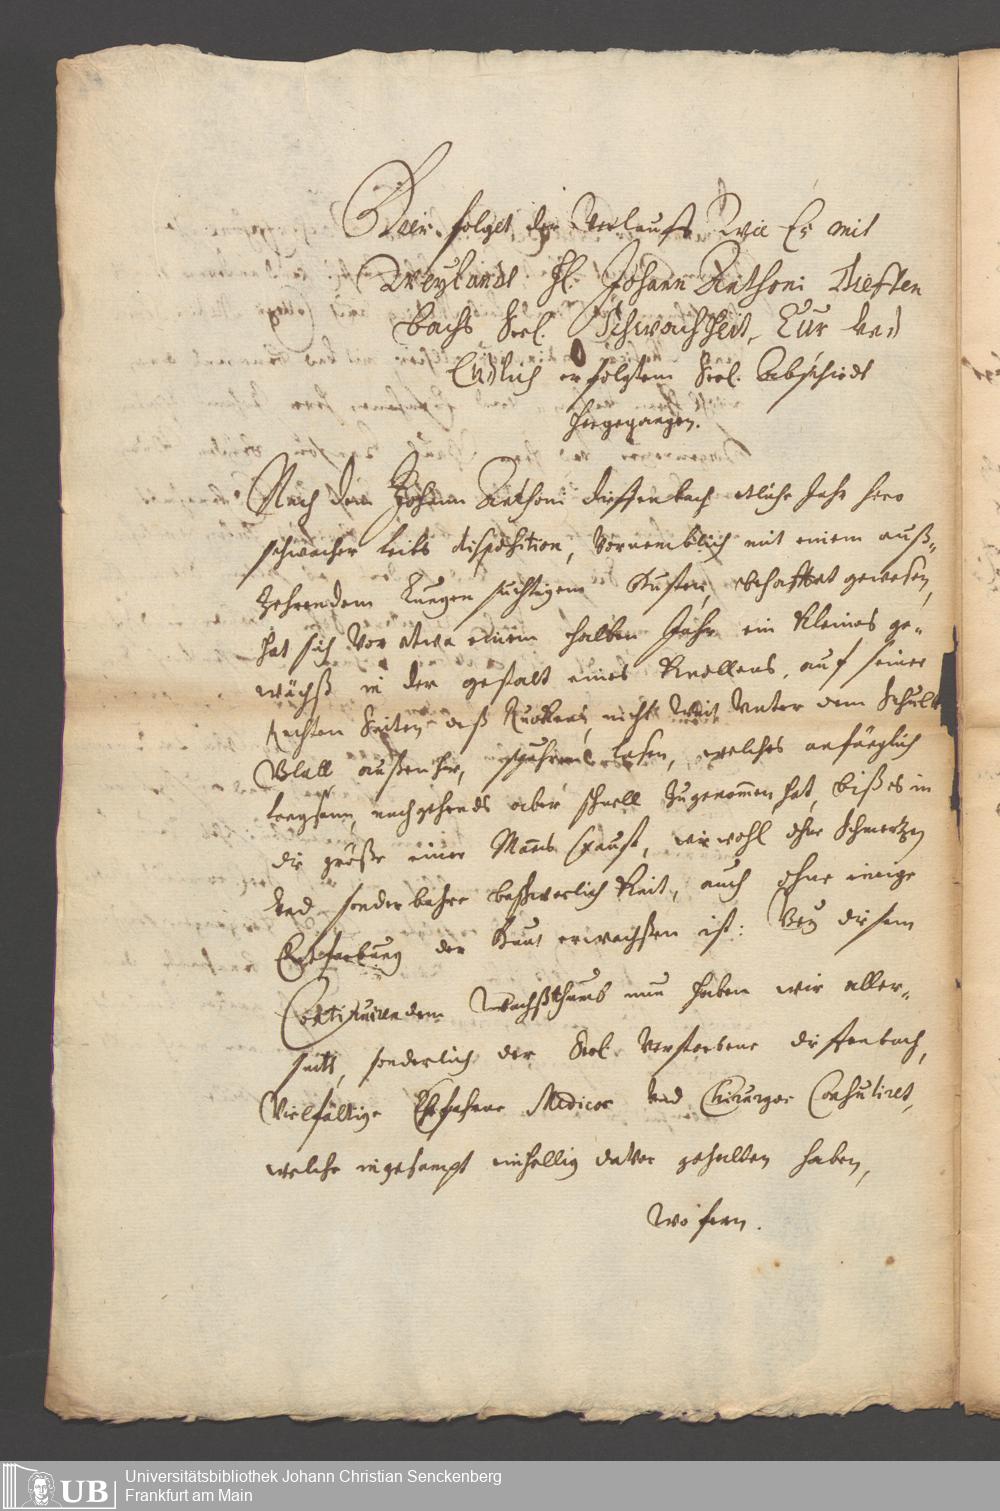 Hier folget der Verlauff Wie Es mit
Weylandt H. Johann Anthoni Dieffen
bachs Seel. Schwachheit, Cur und
Endlich erfolgtem Seel. Abschiedt
hergegangen.
Nach dem Johann Anthoni Dieffenbach etliche Jahr hero
schwacher leibs disposition, Vornemblich mit einem auß„
zehrendem Lungen suchtigem Husten, behafftet gewesen,
hat sich Vor etwa einem halben Jahr ein kleines ge„
wächß in der gestalt eines Knollens, auf seiner
rechten Seiten deß Ruckens, nicht Weit Unter dem Schult
Blatt außen her, spühren lasen, welches anfänglich
langsam, nachgehends aber schnell zugenommen hat, biß es in
die größe einer Manns Faust, wiewohl ohne Schmertzen
und sonderbahre beschwerlichkeit, auch ohne einige
Entfarbung der Haut erwachßen ist: Bey diesem
Continuirendem Wachßthumb nun haben wir aller„
seits, sonderlich der Seel. Verstorbene Dieffenbach,
Vielfältige Erfahrne Medicos und Chirurgos Consuliret,
welche ingesampt einhellig davor gehalten haben,
wofern.
Universitätsbibliothek Johann Christian Senckenberg
Frankfurt am Main
UB